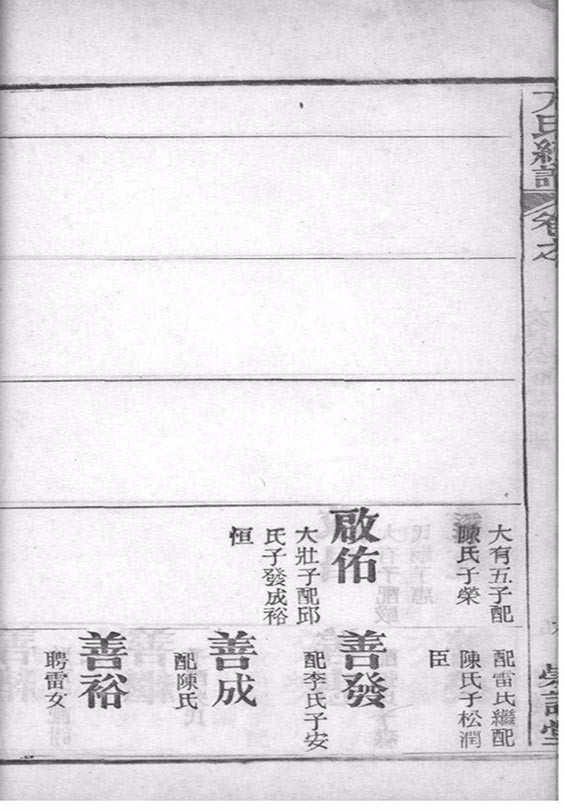 氏續譜
卷之
大有五子配
陳氏子榮
啟佑
大壯子配邱
氏子發成裕
恒
配雷氏繼配
陳氏子松潤
臣
善發
配李氏子安
善成
配陳氏
善裕
聘雷女